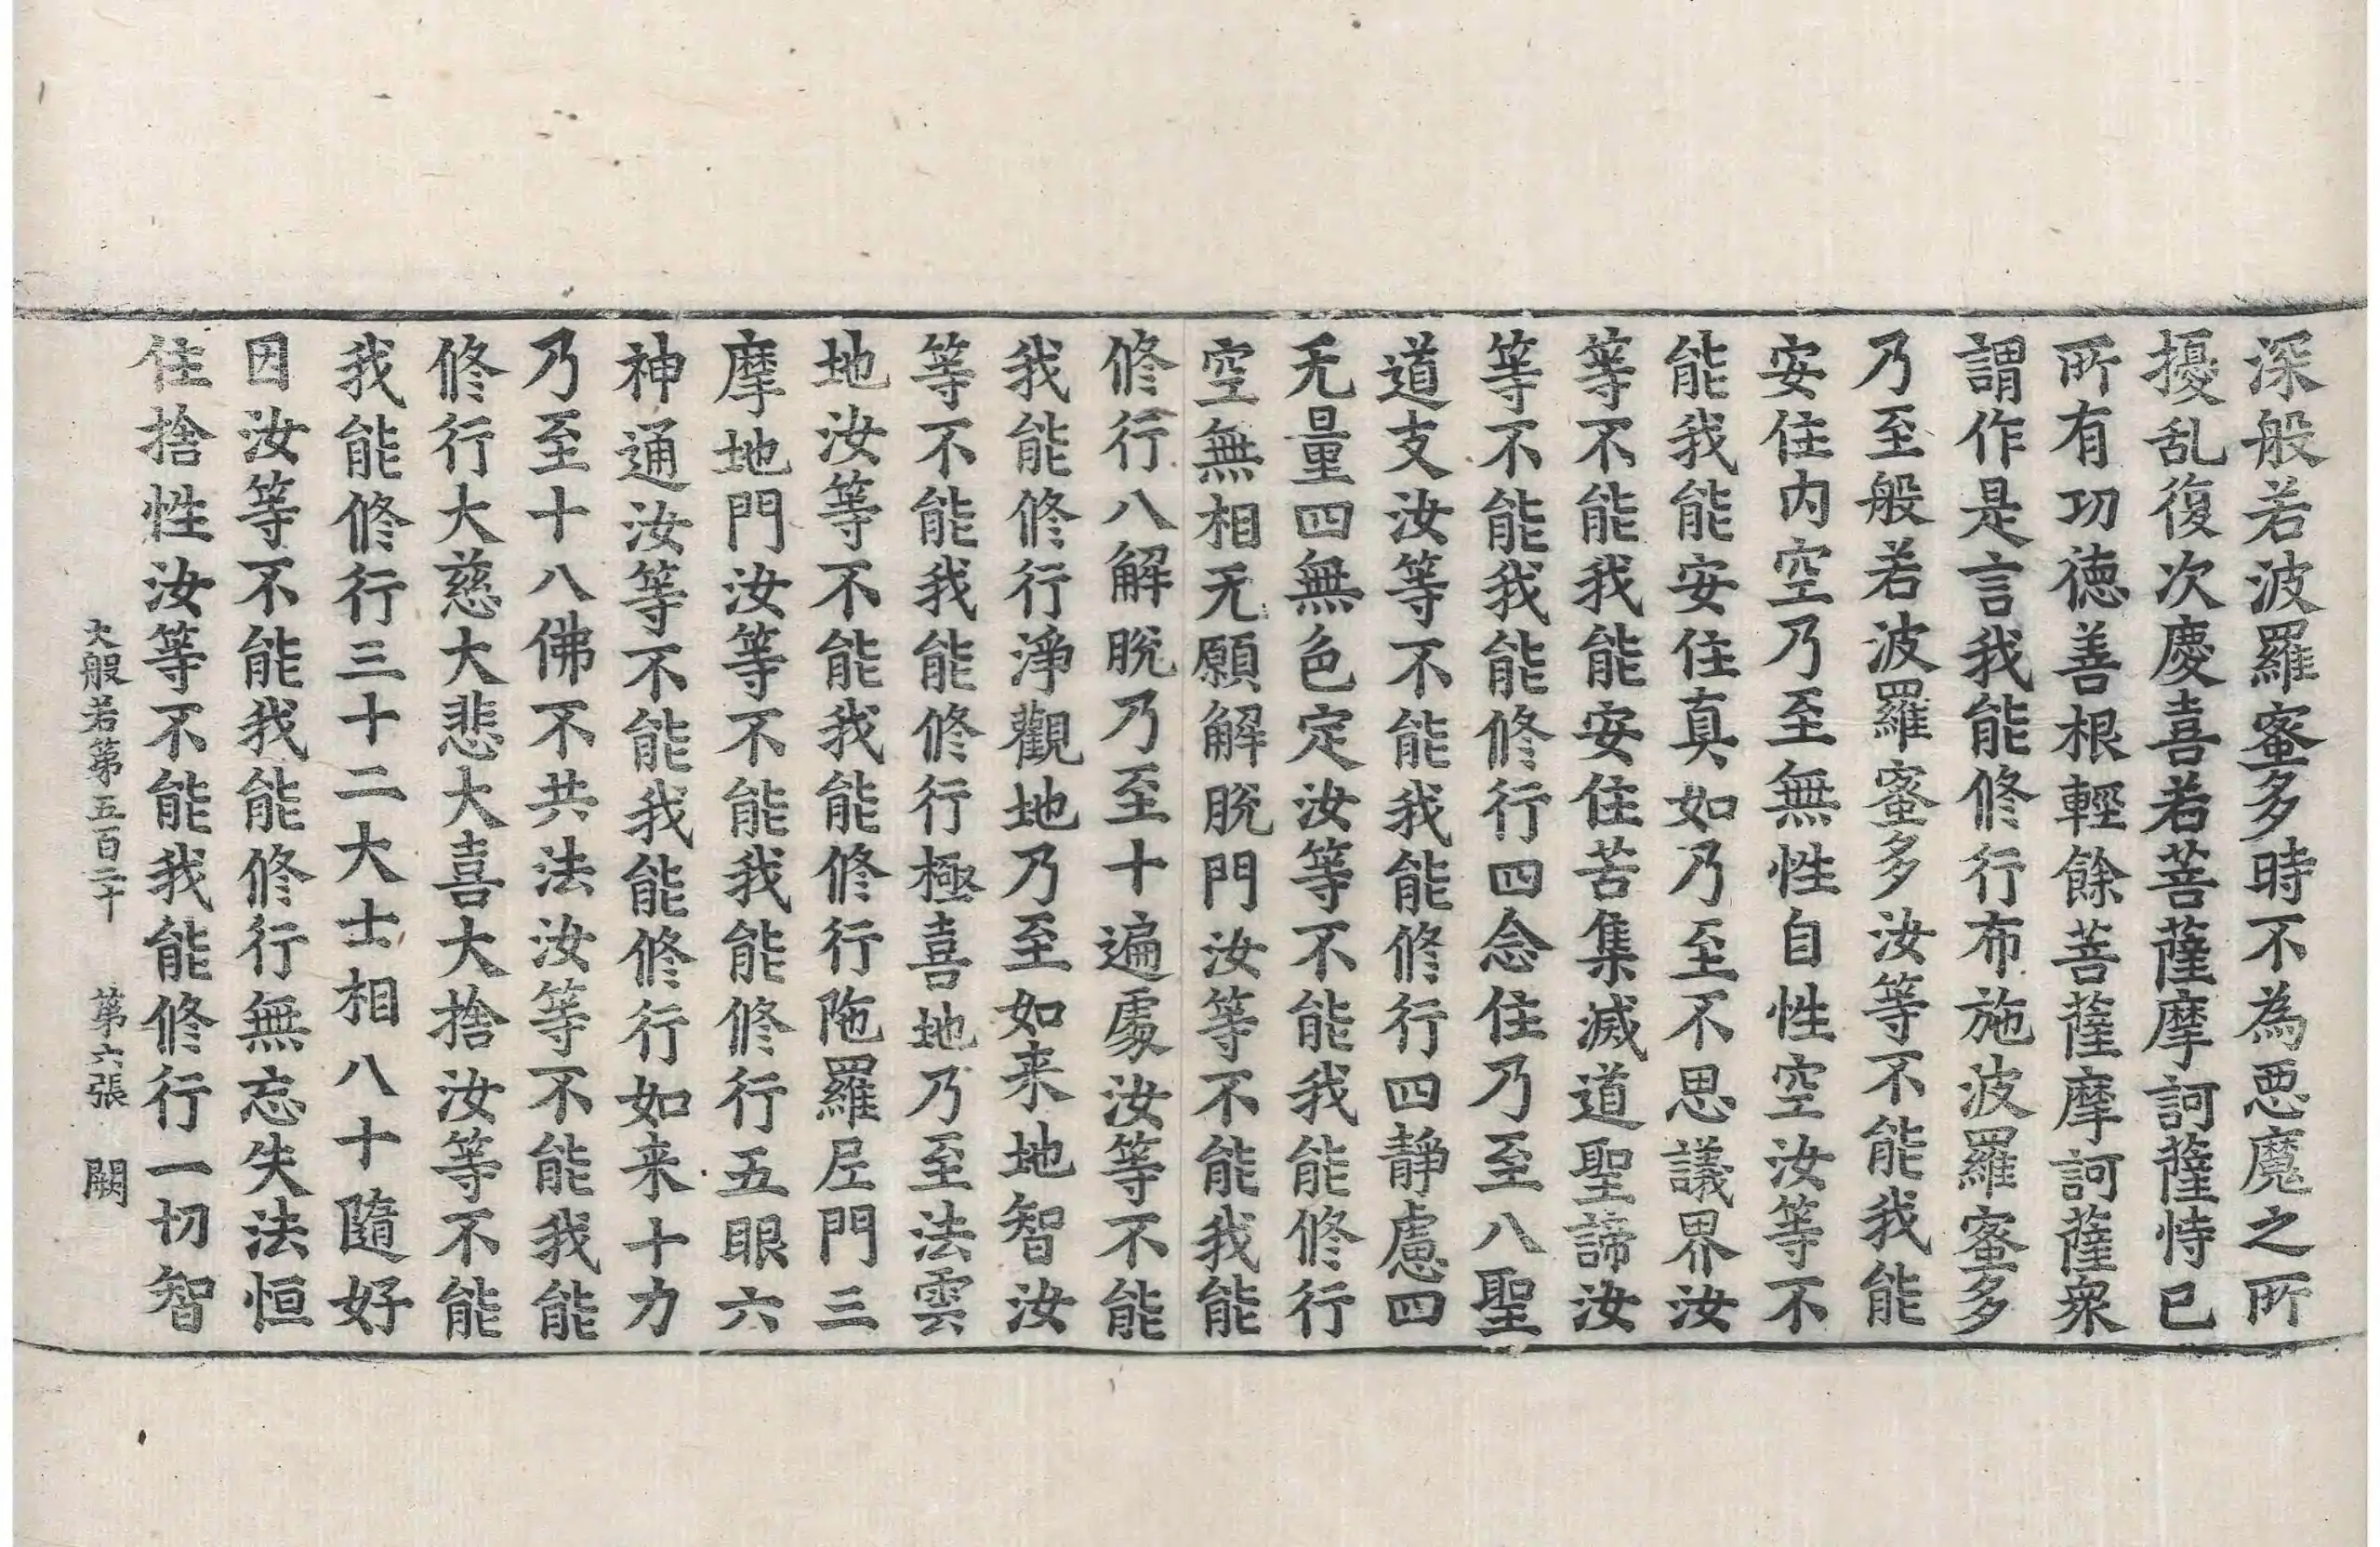 深般若波羅蜜多時不為惡魔之所
擾乱復次慶喜若菩薩摩訶薩恃已
所有功德善根輕餘菩薩摩訶薩衆
謂作是言我能修行布施波羅蜜多
乃至般若波羅蜜多汝等不能我能
安住内空乃至無性自性空汝等不
能我能安住真如乃至不思議界汝
等不能我能安住苦集滅道聖諦汝
等不能我能修行四念住乃至八聖
道支汝等不能我能修行四靜慮四
无量四無色定汝等不能我能修行
空無相无願解脫門汝等不能我能
修行八解脫乃至十遍處汝等不能
我能修行淨觀地乃至如来地智汝
等不能我能修行極喜地乃至法雲
地汝等不能我能修行陁羅尼門三
摩地門汝等不能我能修行五眼六
神通汝等不能我能修行如来十力
乃至十八佛不共法汝等不能我能
修行大慈大悲大喜大捨汝等不能
我能修行三十二大士相八十隨好
因汝等不能我能修行無忘失法恒
住捨性汝等不能我能修行一切智
大般若第五百二十 第六張 闕